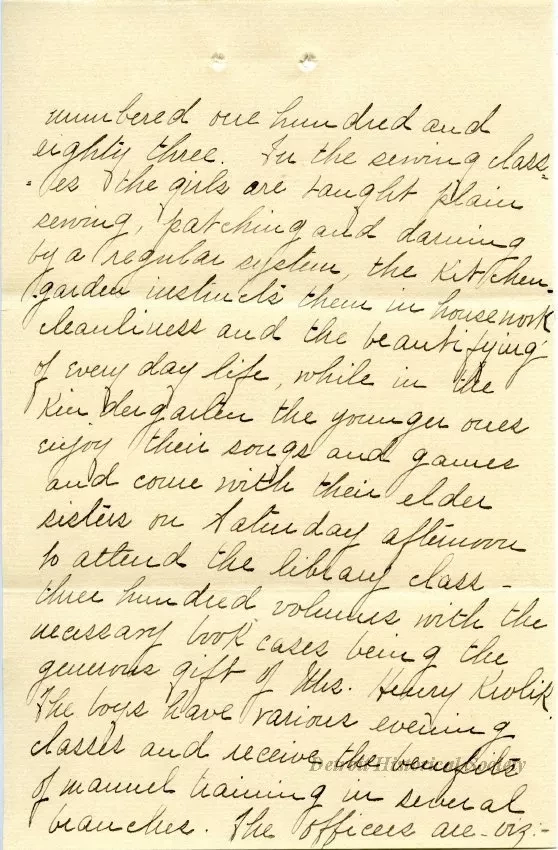 numbered one hundred and
eighty three. In the sewing class=
=es the girls are taught plain
sewing, patching and darning
by a regular system, the Kitchen-
garden instructs them in housework
cleanliness and the beautifying
of every day life, while in the
Kindergarten the younger ones
enjoy their songs and games
and come with their elder
sisters on Saturday afternoon
to attend the library class -
three hundred volumes with the
necessary book cases being the
generous gift of Mrs. Henry Krolik.
The boys have various evening
classes and receive the benefits
Detroit Historical Society
of manuel training in several
branches. The officers are - viz: -